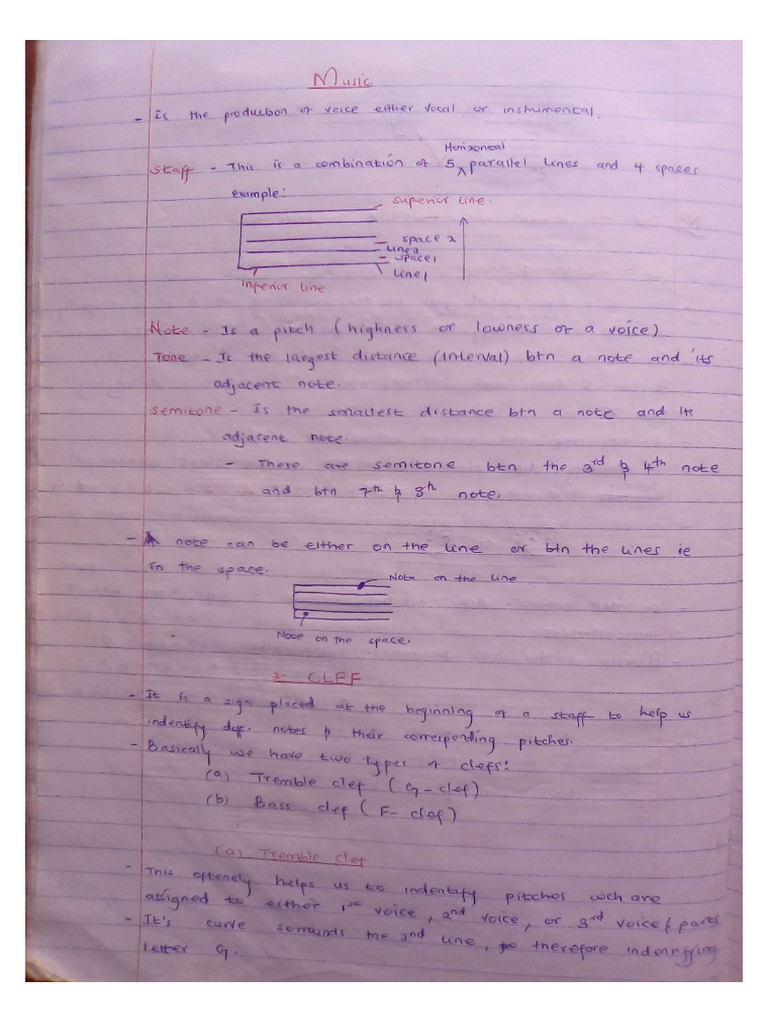 Music
- Is the production of voice either vocal or instrumental.
Horizontal
Staff - This is a combination of 5 ^ parallel lines and 4 spaces
example:
superior line.
space 2
line 2
space 1
line 1
Inferior line
Note - Is a pitch (highness or lowness of a voice)
Tone - Is the largest distance (interval) btn a note and its
adjacent note.
Semitone - Is the smallest distance btn a note and its
adjacent note.
- There are semitone btn the 3rd & 4th note
and btn 7th & 8th note.
- A note can be either on the line or btn the lines ie
in the space.
Note on the line
Note on the space.
2. CLEF
- It is a sign placed at the beginning of a staff to help us
indentify diff. notes & their corresponding pitches.
- Basically we have two types of clefs:
(a) Tremble clef (G-clef)
(b) Bass clef (F-clef)
(a) Tremble clef
- This oftenely helps us to indentify pitches wch are
assigned to either 1st voice, 2nd voice, or 3rd voice/parts
- It's curve sorrounds the 2nd line, therefore indentifying
letter G.